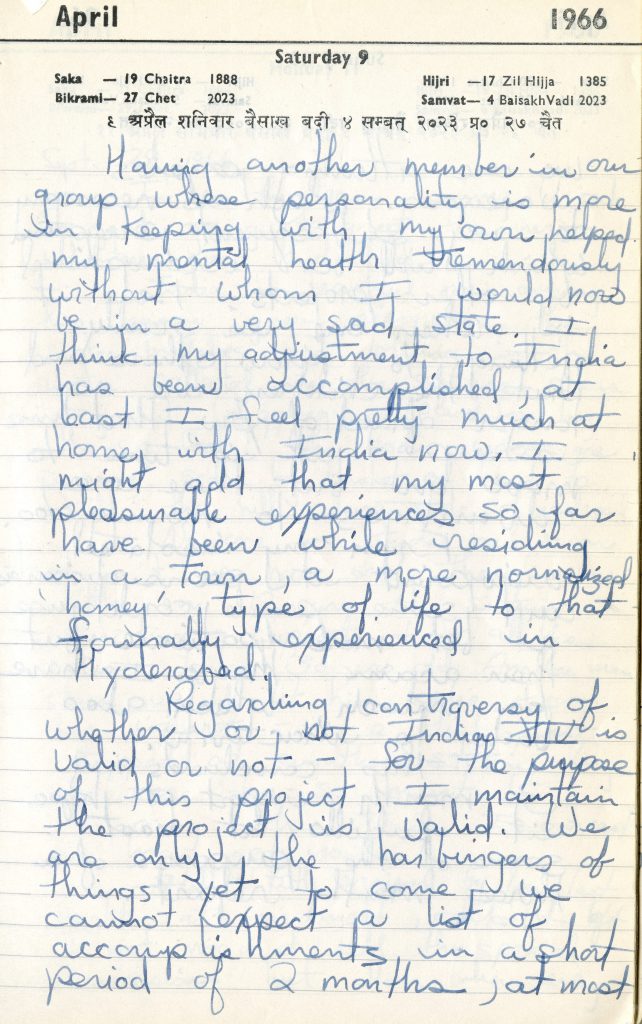 April 1966
Saturday 9
Saka — 19 Chaitra 1888 Hijri —17 Zil Hijja 1385
Bikrami— 27 Chet 2023 Samvat— 4 BaisakhVadi 2023
९ अप्रैल शनिवार बैसाख बदी ४ सम्बत् २०२३ प्र० २७ चैत
Having another member in our
group whose personality is more
in keeping with my own helped
my mental health tremendously
without whom I would now
be in a very sad state. I
think my adjustment to India
has been accomplished, at
least I feel pretty much at
home with India now. I
might add that my most
pleasurable experiences so far
have been while residing
in a town, a more normalized
'homey' type of life to that
formally experienced in
Hyderabad.
Regarding controversy of
whether or not India is
valid or not - for the purpose
of this project, I maintain
the project is valid. We
are only the harbingers of
things yet to come - we
cannot expect a list of
accomplishments in a short
period of 2 months, at most